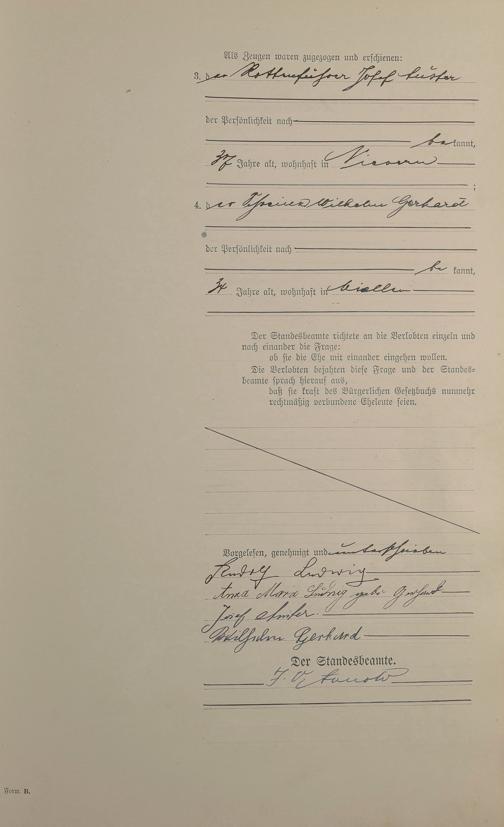 Als Zeugen waren zugezogen und erschienen:
3. der Rottenführer Josef
der Persönlichkeit nach
bekannt,
37 Jahre alt, wohnhaft in Nievern
;
4. der Wilhelm Gerhard
der Persönlichkeit nach
be kannt,
34 Jahre alt, wohnhaft in
Der Standesbeamte richtete an die Verlobten einzeln und
nach einander die Frage:
ob sie die Ehe mit einander eingehen wollen.
Die Verlobten bejahten diese Frage und der Standes-
beamte sprach hierauf aus,
daß sie kraft des Bürgerlichen Gesetzbuchs nunmehr
rechtmäßig verbundene Eheleute seien.
Vorgelesen, genehmigt und unterschrieben
Rudolf Ludwig
Anna Maria Ludwig geb. Gerhard
Josef
Wilhelm Gerhard
Der Standesbeamte.
J. V.
Form. B.